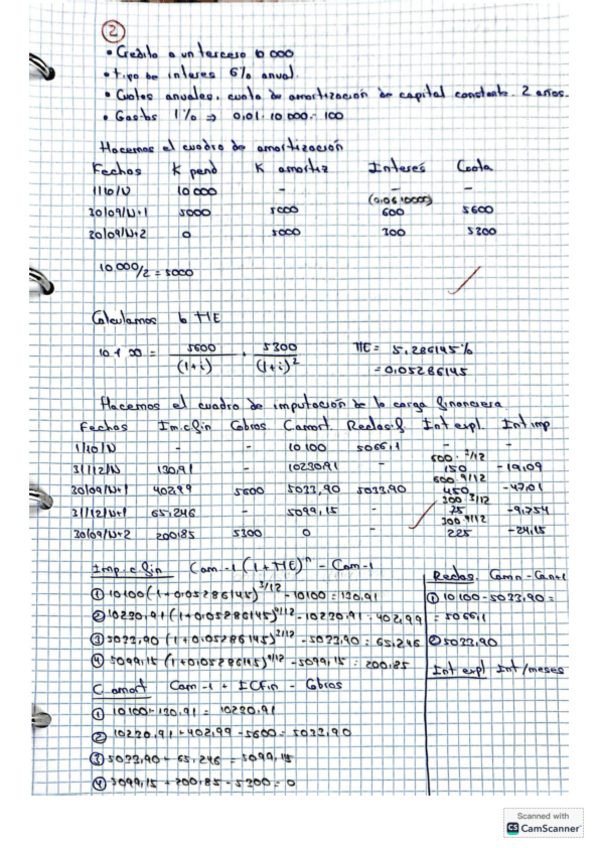 ②
• Credito a un tercero 10 000
• tipo de interes 6% anual.
• Cuotas anuales, cuota de amortización de capital constante. 2 años.
• Gastos 1% ⇒ 0,01 · 10 000 = 100
Hacemos el cuadro de amortización
Fechas K pend K amortiz Interés Cuota
1/10/N 10 000 - - -
(0,06·10000)
30/09/N+1 5000 5000 600 5600
30/09/N+2 0 5000 300 5300
10 000/2 = 5000
Calculamos TIE
10 100 = 5600/(1+i) + 5300/(1+i)² TIE = 5,286145%
= 0,05286145
Hacemos el cuadro de imputación de la carga financiera
Fechas Im.c fin Cobros Camort. Reclasif Int expl. Int imp
1/10/N - - 10 100 5066,1 - -
600 · 3/12
31/12/N 130,91 - 10230,91 - 150 -19,09
600 9/12
30/09/N+1 402,99 5600 5033,90 5033,90 450 -47,01
300 3/12
31/12/N+1 65,246 - 5099,15 - 75 -9,754
300 9/12
30/09/N+2 200,85 5300 0 - 225 -24,15
Imp. c fin Cam-1 (1+TIE)ⁿ - Cam-1
① 10100 (1+0,05286145)^3/12 - 10100 = 130,91
② 10230,91 (1+0,05286145)^9/12 - 10230,91 = 402,99
③ 5033,90 (1+0,05286145)^3/12 - 5033,90 = 65,246
④ 5099,15 (1+0,05286145)^9/12 - 5099,15 = 200,85
Reclas. Camn - Can+1
① 10 100 - 5033,90 =
= 5066,1
② 5033,90
Int expl Int/meses
C amort Cam-1 + ICFin - Cobros
① 10100 + 130,91 = 10230,91
② 10230,91 + 402,99 - 5600 = 5033,90
③ 5033,90 + 65,246 = 5099,15
④ 5099,15 + 200,85 - 5300 = 0
Scanned with
CS CamScanner